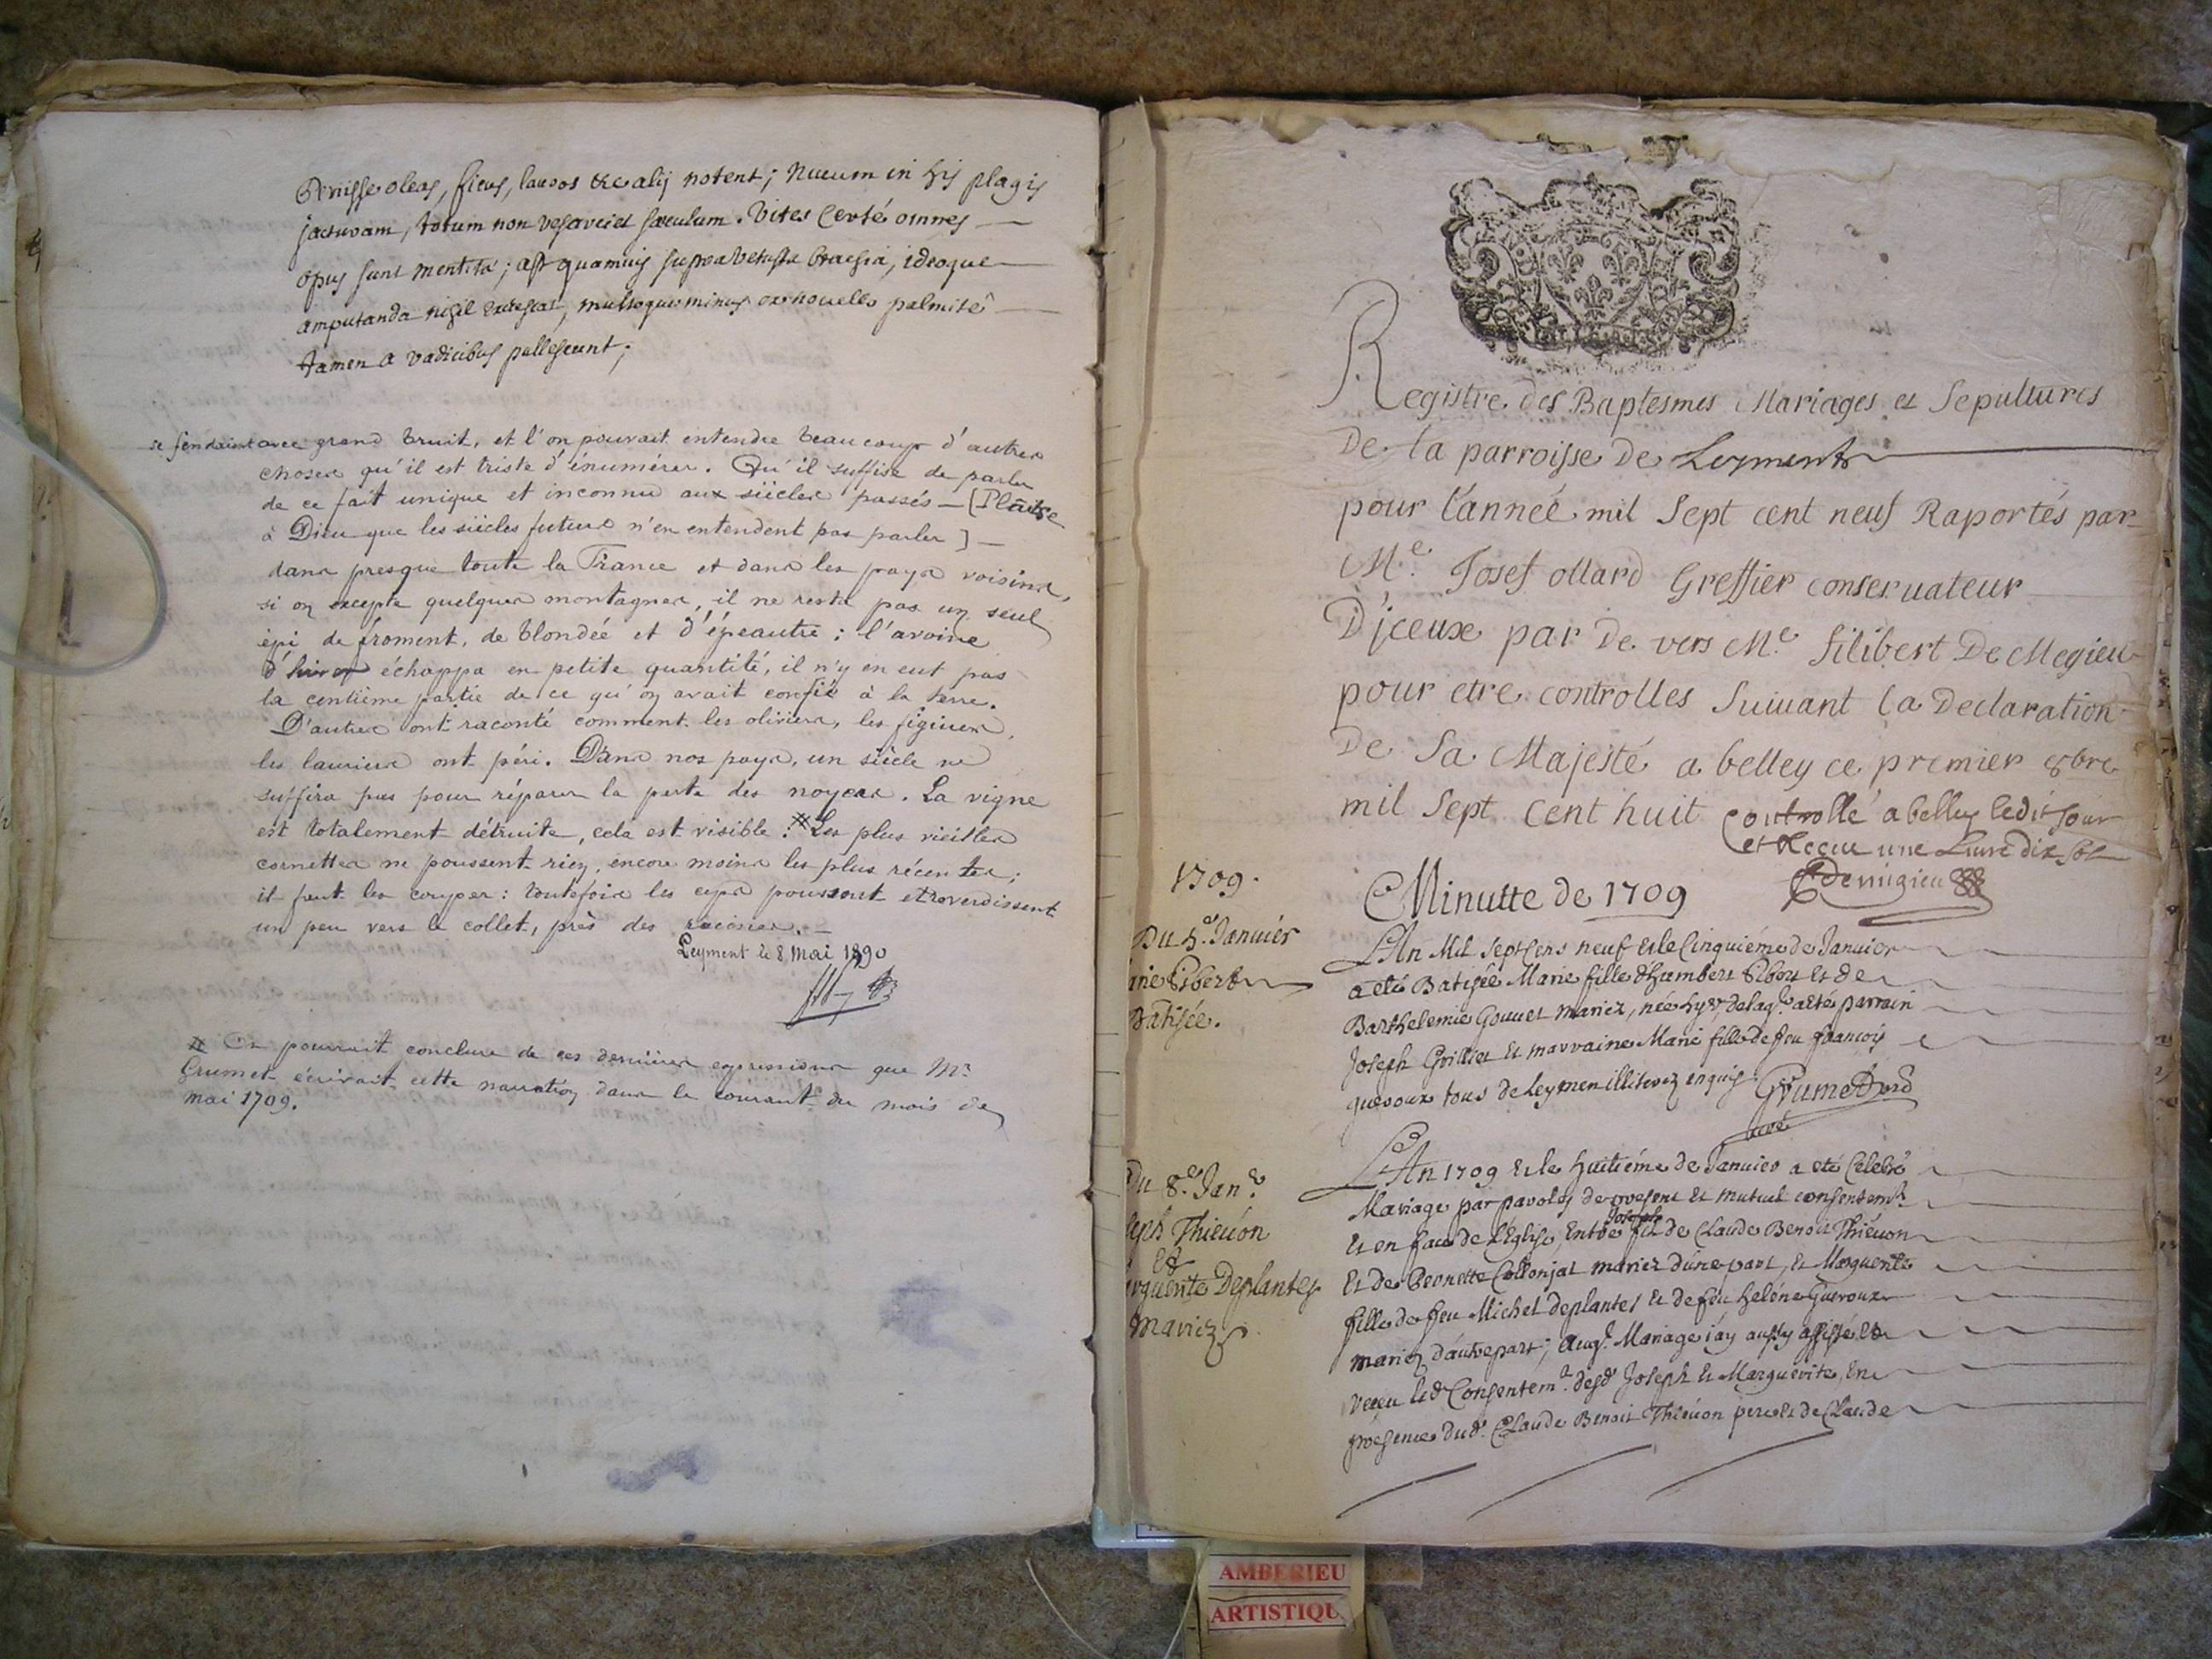 Periisse oleas, ficus, lauros &c alij notent; Nucum in his plagis
jacturam, totum non resarciet sæculum. Vites certé omnes
opus sunt mentita; ast quamuis supra vetusta brachia, ideoque
amputanda nihil crescat, multoque minus ex nouello palmite
tamen a radicibus pallescunt;
se fendaient avec grand bruit, et l'on pouvait entendre beaucoup d'autres
choses qu'il est triste d'énumérer. Qu'il suffise de parler
de ce fait unique et inconnu aux siècles passés — [Plaise
à Dieu que les siècles futurs n'en entendent pas parler] —
dans presque toute la France et dans les pays voisins,
si on excepte quelques montagnes, il ne resta pas un seul
épi de froment, de blondée et d'épeautre : l'avoine
d'hiver échappa en petite quantité, il n'y en eut pas
la centième partie de ce qu'on avait confié à la terre.
D'autres ont raconté comment les oliviers, les figuiers,
les lauriers ont péri. Dans nos pays, un siècle ne
suffira pas pour réparer la perte des noyers. La vigne
est totalement détruite, cela est visible : # Les plus vieilles
cornettes ne poussent rien, encore moins les plus récentes ;
il faut les couper : toutefois les ceps poussent et reverdissent
un peu vers le collet, près des racines. —
Leyment le 8 mai 1890
# On pourrait conclure de ces dernières expressions que Mr
Grumet écrivait cette narration dans le courant du mois de
mai 1709.
Registre des Baptesmes Mariages et Sepultures
De la parroisse De Leyment
pour l'année mil Sept cent neuf Raportés par
Me. Josef ollard Greffier conseruateur
D'jceux par De vers Me filibert De Megieu
pour etre controlles Suiuant la Declaration
De Sa Majesté a belley ce premier 8bre
mil Sept Cent huit Controllé a belley ledit Jour
et Receu une Liure dix sol
1709.
Minutte de 1709
Demigieu
Du 5e. Januier
rie Gibert
Batisée.
L'An Mil Sept Cens neuf et le Cinquiéme de Januier
a eté Batisée Marie fille d'Humbert Gibert et de
Barthelemie Gouuet mariez, née hyer, de laqle. a eté parrain
Joseph Grilliet et marraine Marie fille de feu françois
gueroux tous de Leymen illiterez enquis. Grumet prd
curé
Du 8e. Janer.
seph Thieuon
et
rguerite Deplantes
Mariez
L'An 1709 et le huitiéme de Januier a eté Celebré
Mariage par paroles de present et mutuel consentemt.
et en face de l'Eglise, Entre Joseph fils de Claude Benoit Thieuon
et de Pernette Collonjat mariez d'une part, et Marguerite
fille de feu Michel Deplantes et de feu heléne Gueroux
mariez d'autre part; auql. Mariage j'ay aussy assisté et
receu led. Consentemt. desd. Joseph et Marguerite, En
presence dud. Claude Benoit Thieuon pere et de Claude
AMBERIEU
ARTISTIQU